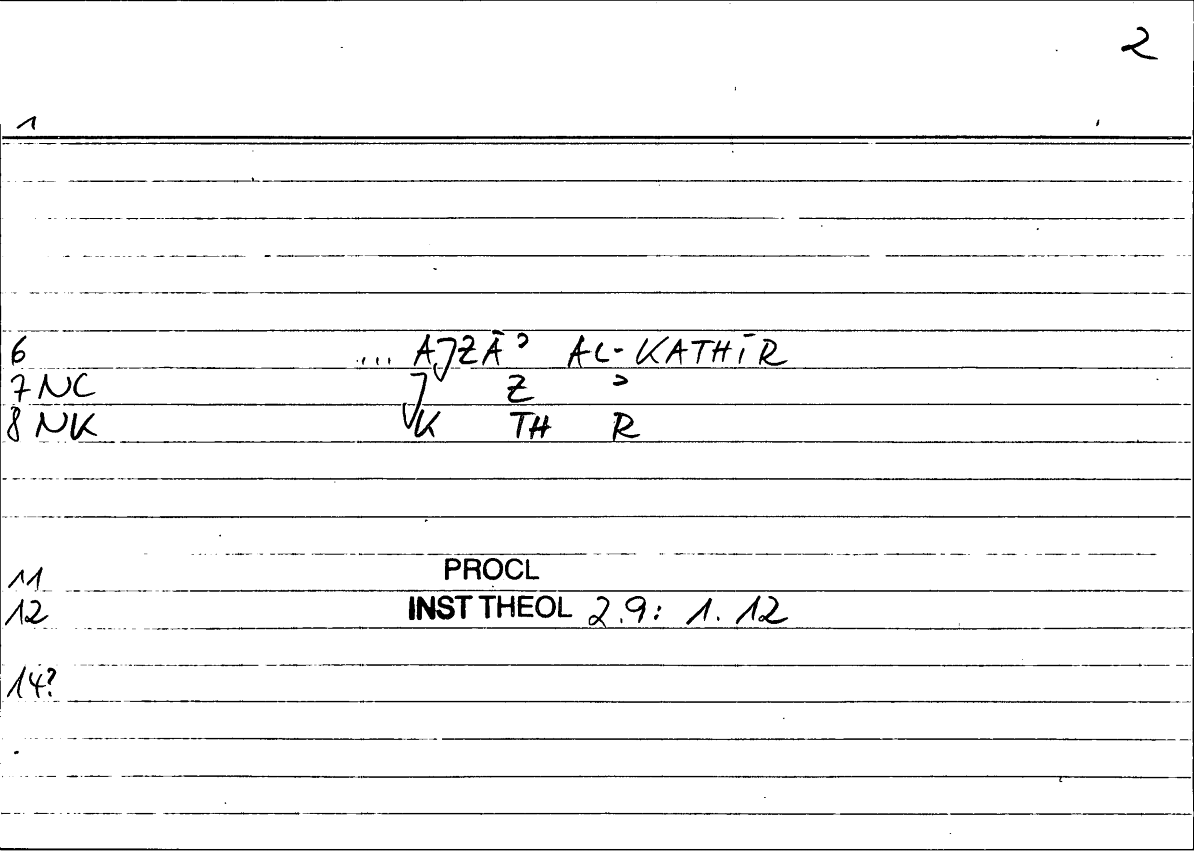 2
1
6 ... AJZĀʾ AL-KATHĪR
7 NC J Z ʾ
8 NK K TH R
11 PROCL
12 INST THEOL 2.9: 1. 12
14?